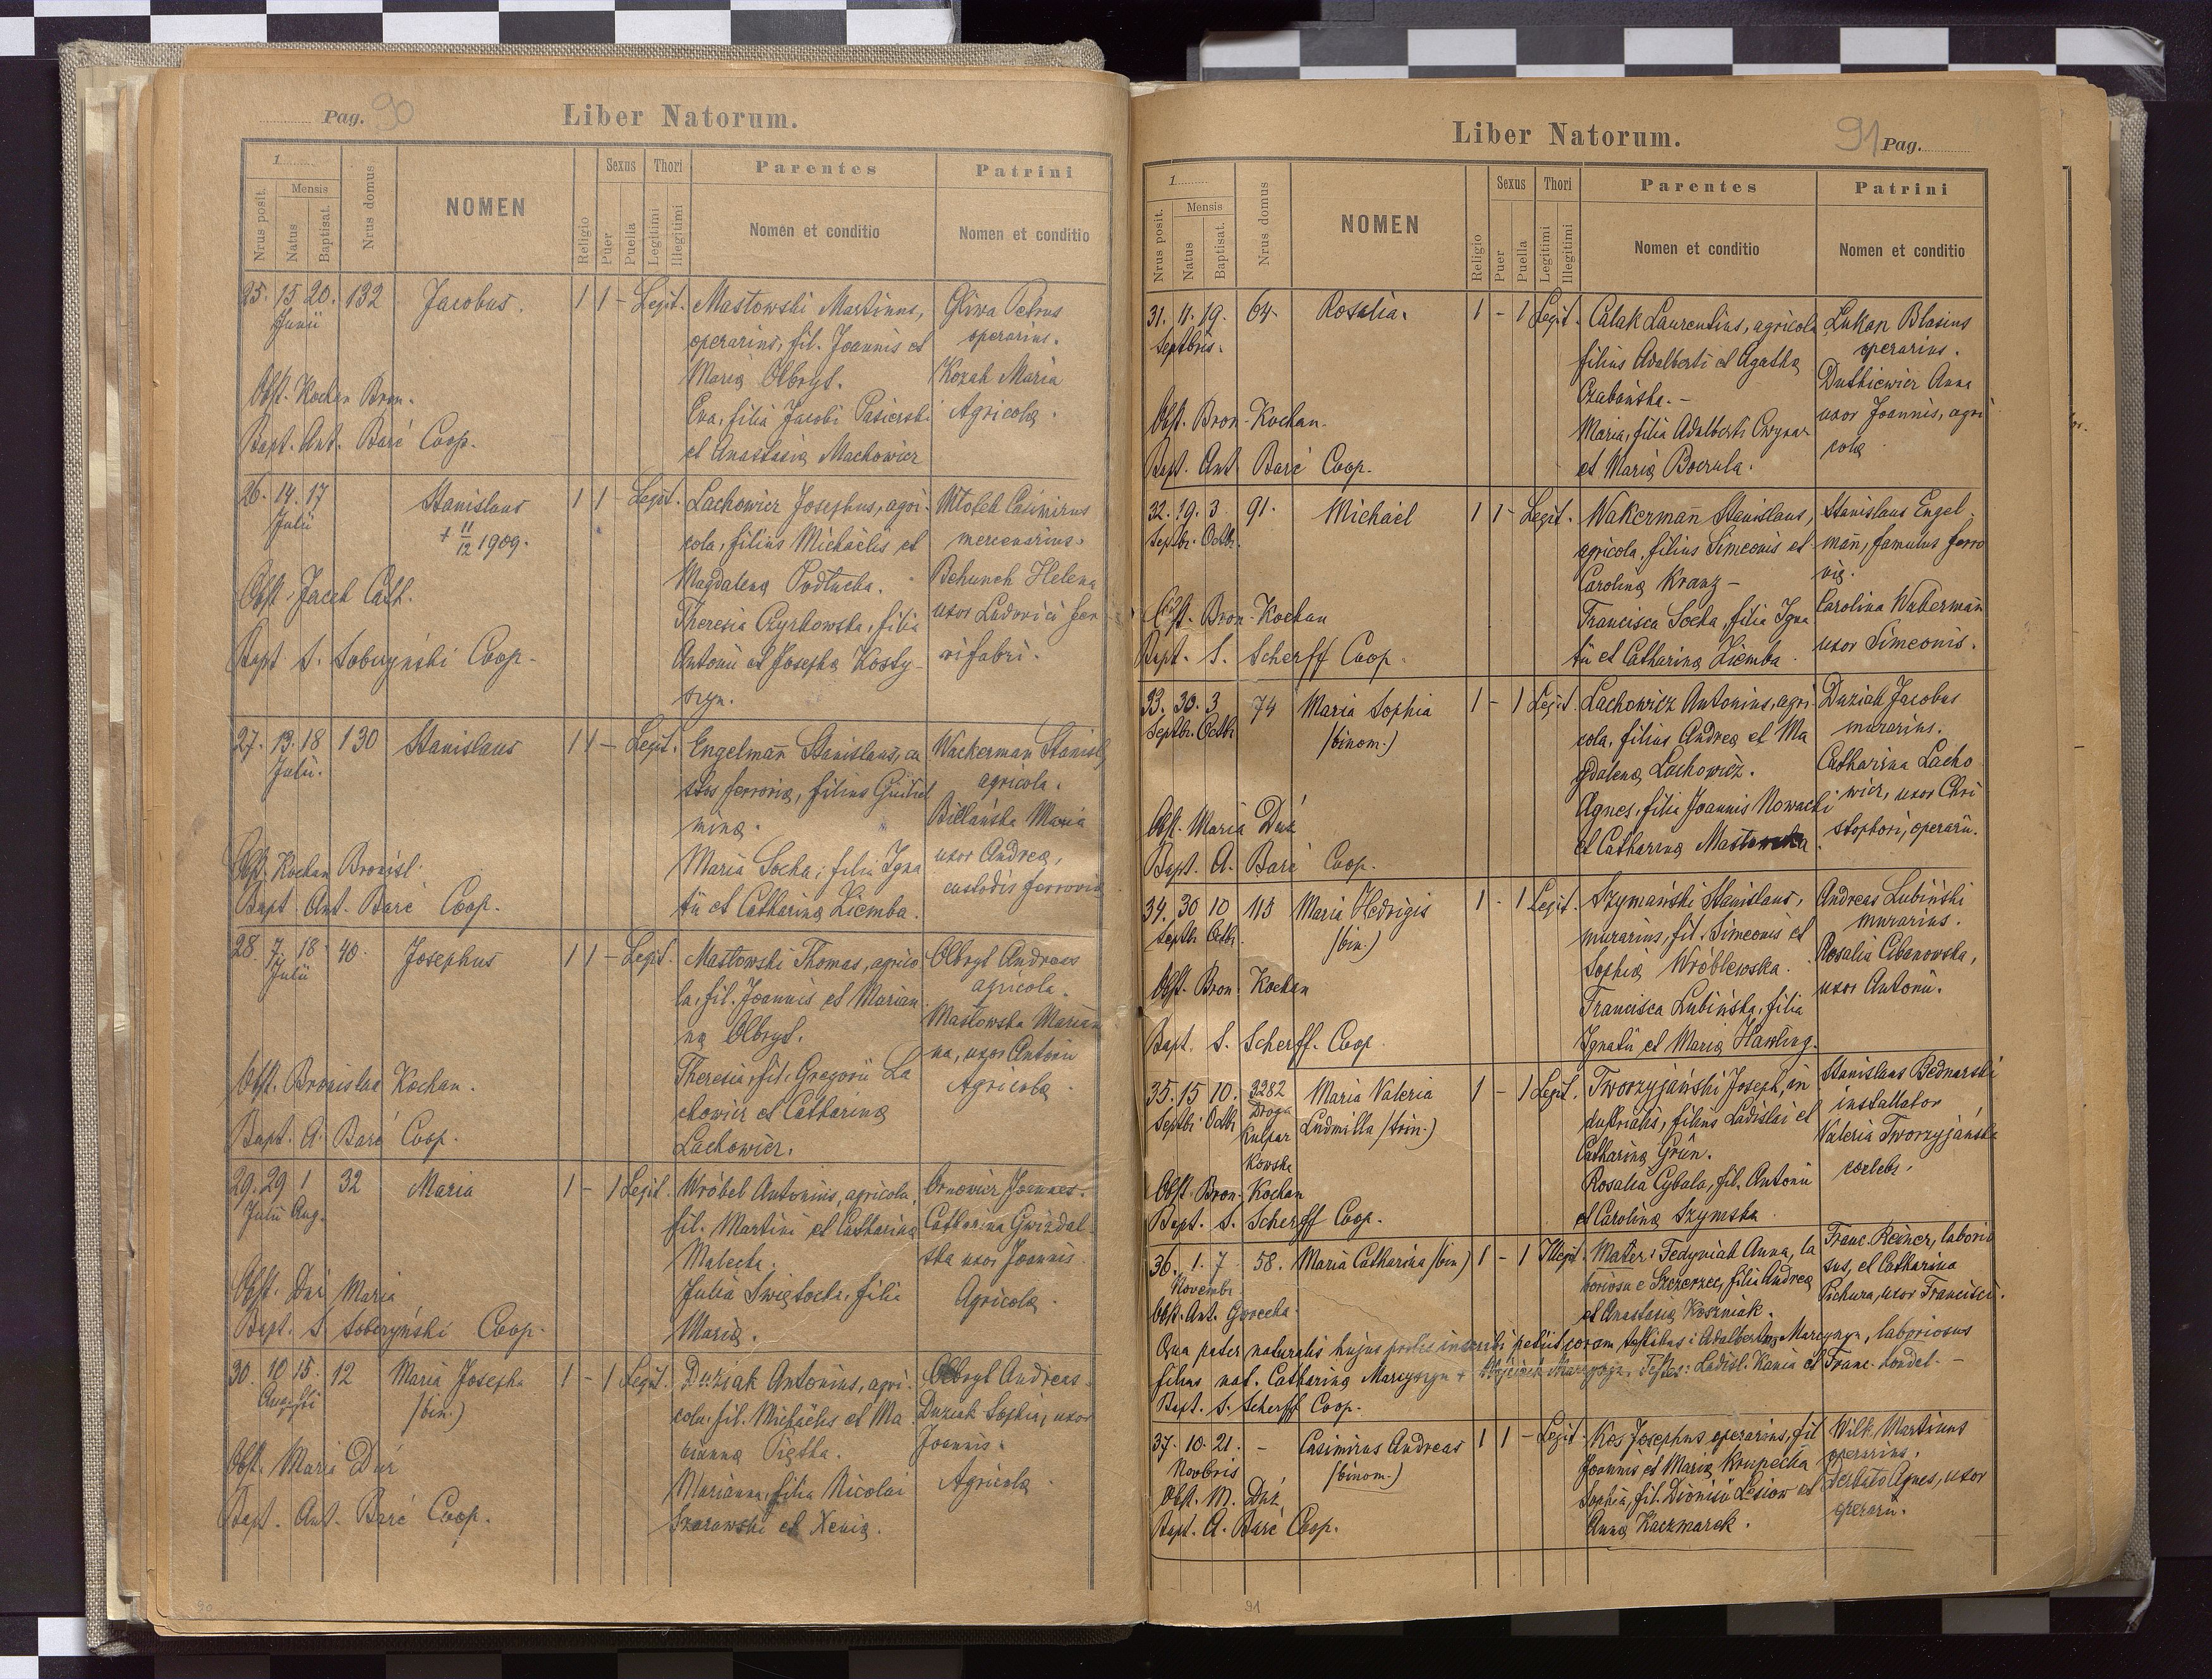 Pag. 90
Liber Natorum.
1
Nrus posit.
Mensis
Natus
Baptisat.
Nrus domus
NOMEN
Religio
Sexus
Puer
Puella
Thori
Legitimi
Illegitimi
Parentes
Nomen et conditio
Patrini
Nomen et conditio
25. 15 20. 132 Jacobus. 1 1 - Legit. Masłowski Martinus, Gliwa Petrus
Junii
operarius, fil. Joannis et operarius.
Maria Olbryt. Kozak Maria
Obst. Kochan Bron.
Eva, filia Jacobi Pasierski Agricola.
Bapt. Ant. Barć Coop.
et Anastasia Machowicz
26. 14. 17 Stanislaus 1 1 - Legit. Lachowicz Josephus, agri- Młotek Casimirus
Julii
+ 11/12 1909.
cola, filius Michaelis et mercenarius.
Magdalena Podłucka. Behunek Helena
Obst. Jacek Cath.
Theresia Czyrkowska, filia uxor Ludovici fer
Bapt. S. Sobczyński Coop.
Antonii et Josepha Kosty- rifabri.
szyn.
27. 13. 18 130 Stanislaus 1 1 - Legit. Engelmann Stanislaus, cu Wackerman Stanisl
Julii.
stos ferroviæ, filius Guilel agricola.
mina. Billańska Maria
Maria Socha, filia Igna uxor Andreæ,
Obst. Kochan Bronisl.
tii et Catharina Ziemba. custodis ferroviæ
Bapt. Ant. Barć Coop.
28. 7. 18 40. Josephus 1 1 - Legit. Masłowski Thomas, agrico Olbryt Andreas
Julii
la, fil. Joannis et Marian agricola.
na Olbryt. Masłowska Marian
Theresia, fil. Gregorii La na, uxor Antonii
Obst. Bronislaa Kochan.
chowicz et Catharina Agricola
Bapt. A. Barć Coop.
Lachowicz.
29. 29 1 32 Maria 1 - 1 Legit. Wróbel Antonius, agricola, Ornowicz Joannes.
Julii Aug.
fil. Martini et Catharina Catharina Gwizdal
Malecka. ska uxor Joannis
Julia Swiętocha, filia Agricola.
Obst. Duż Maria
Maria.
Bapt. S. Sobczyński Coop.
30. 10 15. 12 Maria Josepha 1 - 1 Legit. Duziak Antonius, agri- Olbryt Andreas
Augusti
(bin.)
cola, fil. Michaelis et Ma Duziak Sophia, uxor
rianna Piętka. Joannis.
Obst. Maria Duż
Marianna, filia Nicolai Agricola
Bapt. Ant. Barć Coop.
Szarawski et Xenia.
90
Liber Natorum.
91 Pag.
1
Nrus posit.
Mensis
Natus
Baptisat.
Nrus domus
NOMEN
Religio
Sexus
Puer
Puella
Thori
Legitimi
Illegitimi
Parentes
Nomen et conditio
Patrini
Nomen et conditio
31. 11. 19. 64. Rosalia. 1 - 1 Legit. Całak Laurentius, agricola Łukan Blasius
Septbris.
filius Adalberti et Agatha operarius.
Czabańska.- Dutkiewicz Anna
Obst. Bron. Kochan.
Maria, filia Adalberti Cwynar uxor Joannis, agri
Bapt. Ant Barć Coop.
et Maria Boczula. cola
32. 19. 3. 91. Michaël 1 1 - Legit. Wakermann Stanislaus, Stanislaus Engel
Septbr. Octbr.
agricola, filius Simeonis et mann, famulus ferro
Carolina Kranz - viæ.
Obst. Bron. Kochan
Francisca Socha, filia Igna Carolina Wakermann
Bapt. S. Scherff Coop.
tii et Catharina Ziemba. uxor Simeonis.
33. 30. 3 74 Maria Sophia 1 - 1 Legit. Lachowicz Antonius, agri Duziak Jacobus
Septbr. Octbr
(binom.)
cola, filius Andreæ et Ma murarius.
gdalena Lachowicz. Catharina Lacho
Agnes, filia Joannis Nowacki wicz, uxor Chri
Obst. Maria Duż
et Catharina Masłowska. stophori, operarii.
Bapt. A. Barć Coop.
34. 30 10 113 Maria Hedvigis 1 - 1 Legit. Szymański Stanislaus, Andreas Lubiński
Septbr Octbr.
(bin.)
murarius, fil. Simeonis et murarius.
Sophia Wróblewska. Rosalia Cibanowska,
Obst. Bron. Kochan
Francisca Lubińska, filia uxor Antonii.
Bapt. S. Scherff. Coop.
Ignatii et Maria Hawling.
35. 15 10. 3282 Maria Valeria 1 - 1 Legit. Tworzyjański Joseph, in Stanislaus Bednarski
Septbr. Octbr Droga Ludmilla (trin.)
Kulpar
kowska
dustrialis, filius Ladislai et installator
Catharina Grün. Valeria Tworzyjańska
Obst. Bron. Kochan
Rosalia Cybala, fil. Antonii coelebs.
Bapt. S. Scherff Coop.
et Carolina Szymska
36. 1. 7. 58. Maria Catharina (bin) 1 - 1 Illegit. Mater: Fedyniak Anna, la Franc. Reiner, laborio
Novembr.
boriosa e Szczerzec, filia Andreæ sus, et Catharina
Obst. Ant. Gorecka.
et Anastasia Koszniak. Pichura, uxor Francisci.
Qua pater naturalis hujus prolis inscribi petiit coram testibus: Adalbertus Marcyszyn, laboriosus
filius nat. Catharina Marcyszyn + Wojciech Marcyszyn. Testes: Ladisl. Kania et Franc. Londel. -
Bapt. S. Scherff Coop.
37. 10. 21. - Casimirus Andreas 1 1 - Legit. Kos Josephus operarius, fil Wilk Martinus
Novbris
(binom.)
Joannis et Maria Krupecka operarius.
Obst. M. Duż.
Sophia, fil. Dionisii Lesiow et Agnes, uxor
Bapt. A. Barć Coop.
Anna Kaczmarek. operarii.
91